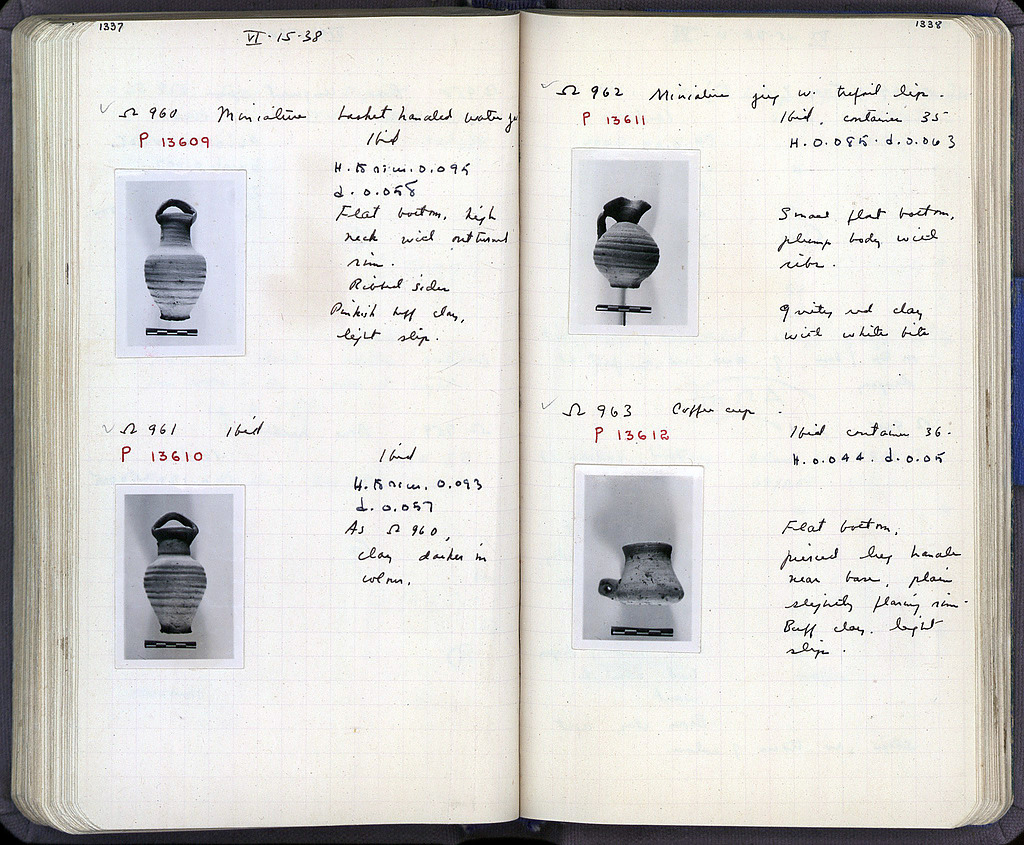 1337
VI-15-38
Ω 960 Miniature basket handled water
P 13609
Ibid
H. to rim. 0.095
d. 0.058
Flat bottom, high
neck with outturned
rim.
Ribbed sides
Pinkish buff clay,
light slip.
Ω 961 Ibid
P 13610
Ibid
H. to rim. 0.093
d. 0.057
As Ω 960,
clay darker in
colour.
1338
Ω 962 Miniature jug w. trefoil lip.
P 13611
Ibid, container 35
H. 0.085. d. 0.063
Small flat bottom,
plump body with
ribs.
Gritty red clay
with white bits
Ω 963 Coffee cup.
P 13612
Ibid container 36.
H. 0.044. d. 0.05
Flat bottom,
pierced lug handle
near base, plain
slightly flaring rim.
Buff clay. light
slip.